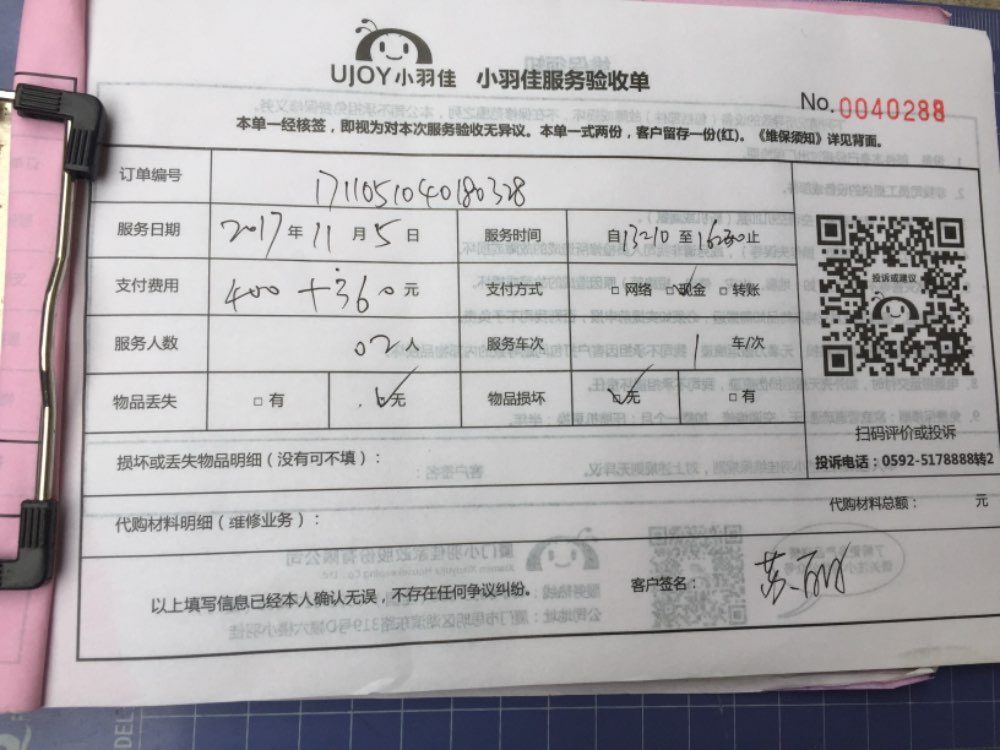 UJOY小羽佳 小羽佳服务验收单
No.0040288
本单一经核签，即视为对本次服务验收无异议。本单一式两份，客户留存一份(红)。《维保须知》详见背面。
订单编号 1711051040180328
服务日期 2017年11月5日 服务时间 自 至 止
支付费用 400+360元 支付方式 □网络 ☑现金 □转账
服务人数 02人 服务车次 1车/次
物品丢失 □有 ☑无 物品损坏 ☑无 □有
投诉或建议
扫码评价或投诉
投诉电话：0592-5178888转2
损坏或丢失物品明细（没有可不填）：
代购材料明细（维修业务）： 代购材料总额： 元
以上填写信息已经本人确认无误，不存在任何争议纠纷。 客户签名： 苏丽